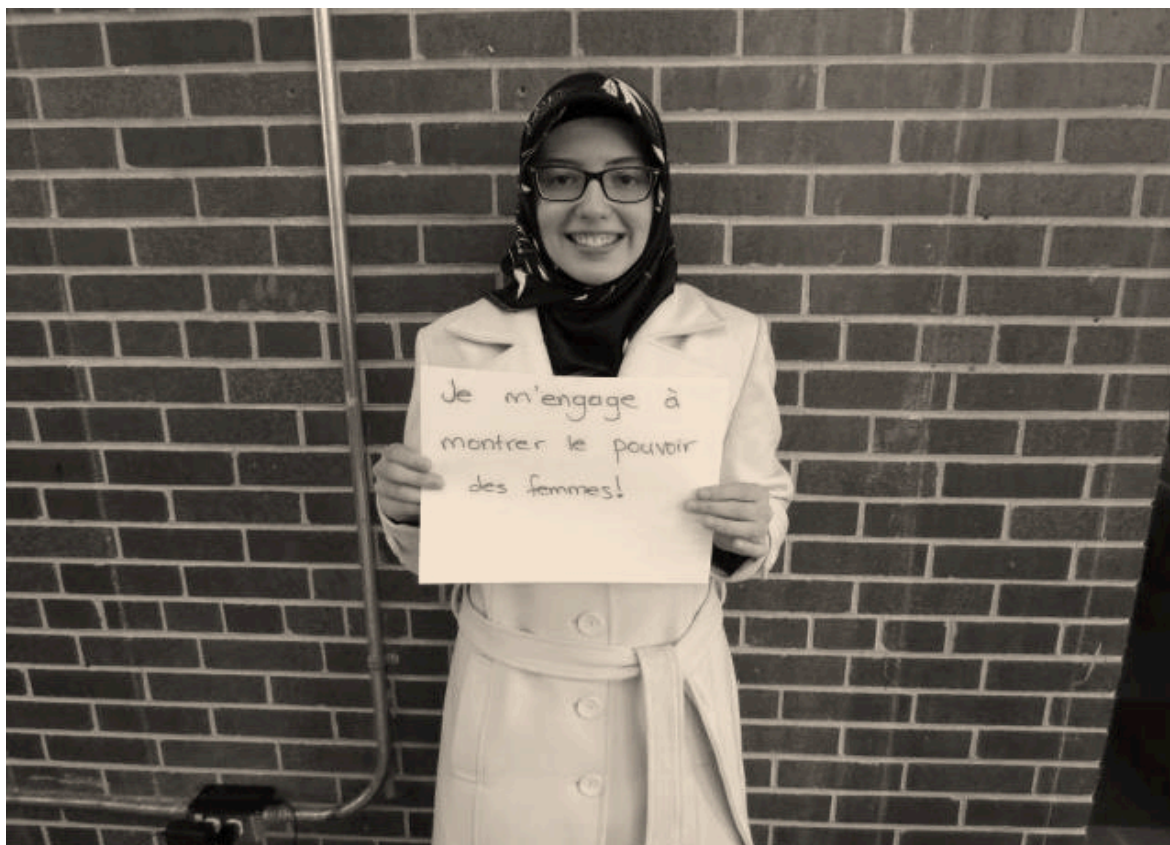 Je m'engage à
montrer le pouvoir
des femmes!